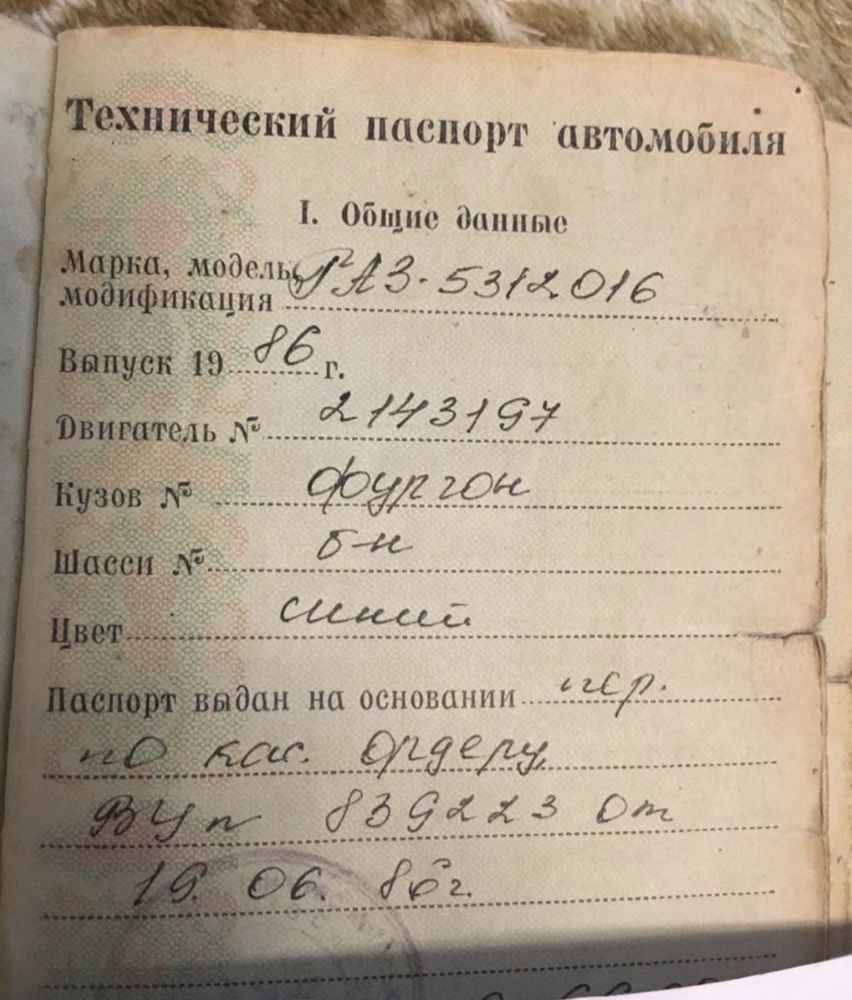 Технический паспорт автомобиля
I. Общие данные
Марка, модель,
модификация ГАЗ-5312016
Выпуск 19 86 г.
Двигатель № 2143197
Кузов № фургон
Шасси № б-н
Цвет синий
Паспорт выдан на основании пер.
по кас. ордеру
839223 от
19. 06. 86г.